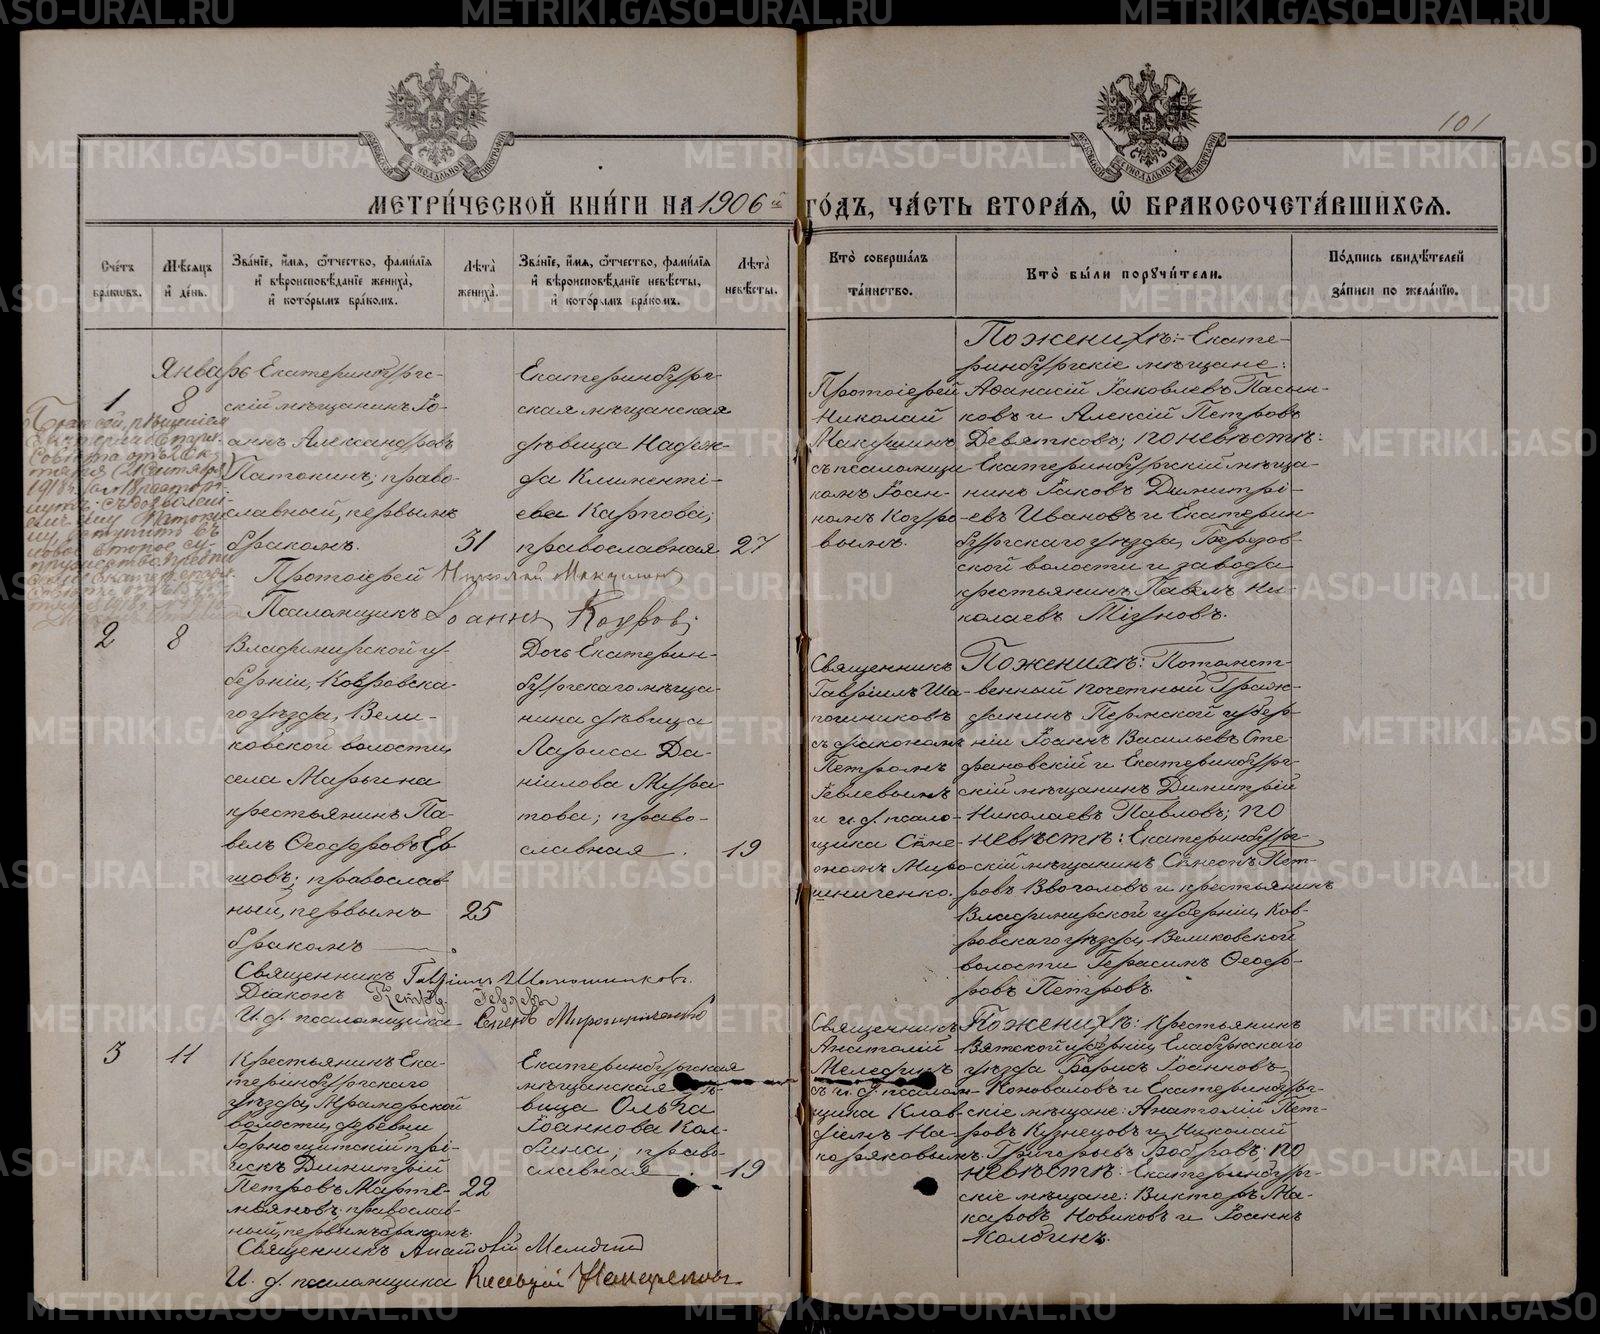 101
МЕТРИ́ЧЕСКОЙ КНИ́ГИ НА 1906й ГО́ДЪ, ЧА́СТЬ ВТОРА́Я, Ѡ БРАКОСОЧЕТА́ВШИХСЯ.
Сче́тъ бра́кѡвъ.
Мѣ́сяцъ и҆ де́нь.
Зва́нїе, и҆́мя, ѻ҆́тчество, фами́лїя и҆ вѣроисповѣ́данїе жениха̀, и҆ кото́рымъ бра́комъ.
Лѣта̀ жениха̀.
Зва́нїе, и҆́мя, ѻ҆́тчество, фами́лїя и҆ вѣроисповѣ́данїе невѣ́сты, и҆ кото́рымъ бра́комъ.
Лѣта̀ невѣ́сты.
Кто̀ соверша́лъ та́инство.
Кто̀ бы́ли поручи́тели.
По́дпись свидѣ́телей за́писи по жела́нїю.
Январь
1
8
Екатеринбургс-
скій мѣщанинъ Іо-
аннъ Александровъ
Патокинъ; право-
славный, первымъ
бракомъ.
31
Екатеринбург-
ская мѣщанская
дѣвица Надеж-
да Климентi-
ева Карпова;
православная
27
Протоіерей
Николай
Макушинъ
съ псаломщи
комъ Іоан-
номъ Когро-
вымъ.
По женихѣ: Екате-
ринбургскіе мѣщане:
Аѳанасій Іаковлевъ Пасын-
ковъ и Алексій Петровъ
Девятковъ; по невѣстѣ:
Екатеринбургскій мѣща-
нинъ Іаковъ Димитрі-
евъ Ивановъ и Екатерин-
бургскаго уѣзда, Березов-
ской волости и завода
крестьянинъ Павелъ Ни-
колаевъ
Протоіерей Николай Макушинъ
Псаломщикъ Іоаннъ
2
8
Владимирской гу-
берніи, Ковровска-
го уѣзда, Вели-
ковской волости,
села Марьина
крестьянинъ Па-
велъ Ѳеодоровъ Ер-
шовъ; православ-
ный, первымъ
бракомъ
25
Дочь Екатерин-
бургскаго мѣща-
нина дѣвица
Лариса Да-
ніилова Мура-
това; право-
славная.
19
Священникъ
Гавріилъ Ша-
пошниковъ
съ діакономъ
Петромъ
Іевлевымъ
и и. д. псало-
щика Семе-
ономъ Миро-
шниченко.
По женихѣ: Потомст-
венный почетный Граж-
данинъ Пермской губер-
ніи Іоаннъ Васильевъ Сте
фановскій и Екатеринбург-
скій мѣщанинъ Димитрій
Николаевъ Павловъ; по
невѣстѣ: Екатеринбург-
скій мѣщанинъ Сѵмеонъ Пет-
ровъ и крестьянинъ
Владимирской губерніи, Ков-
ровскаго уѣзда, Великовской
волости Герасимъ Ѳеодо-
ровъ Петровъ.
Священникъ Гавріилъ Шапошниковъ.
Діаконъ Петръ Іевлевъ
И. д. псаломщика Семенъ Мирошниченко
3
11
Крестьянинъ Ека-
теринбургскаго
уѣзда, Мраморской
волости, деревни
Горнощитскій прі-
искъ Димитрій
Петровъ Марте-
мьяновъ; православ-
ный, первымъ бракомъ.
22
Екатеринбургская
мѣщанская дѣ-
вица Ольга
Іоаннова Кол-
бина; право-
славная.
19
Священникъ
Анатолій
Мелединъ
съ и. д. псалом-
щика Клав-
діемъ На-
коряковымъ.
По женихѣ: крестьянинъ
Вятской губерніи, Елабужскаго
уѣзда Борисъ Іоанновъ
Коноваловъ и Екатеринбург-
скіе мѣщане: Анатолій Пет-
ровъ Кузнецовъ и Николай
Григорьевъ Бобровъ; по
невѣстѣ: Екатеринбург-
скіе мѣщане: Викторъ Ма-
каровъ Новиковъ и Іоаннъ
Колбинъ.
Священникъ Анатолій
И. д. псаломщика